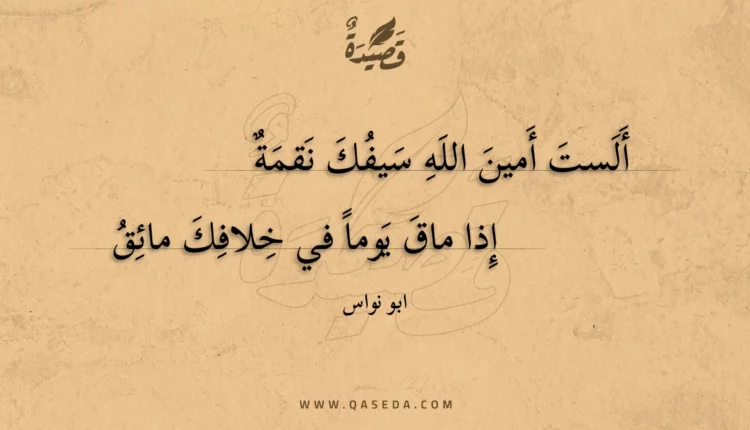 قَصِيْدَةٌ
أَلَستَ أَمينَ اللَهِ سَيفُكَ نَقمَةٌ
إِذا ماقَ يَوماً في خِلافِكَ مائِقُ
ابو نواس
WWW.QASEDA.COM